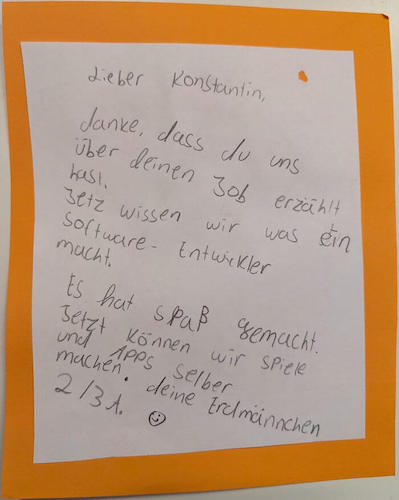 Lieber Konstantin,
danke, dass du uns
über deinen Job erzählt
hast.
Jetz wissen wir was ein
Software- Entwickler
macht.
Es hat spaß gemacht.
Jetzt können wir spiele
und Apps selber
machen.
2/3 1. deine Erdmännchen